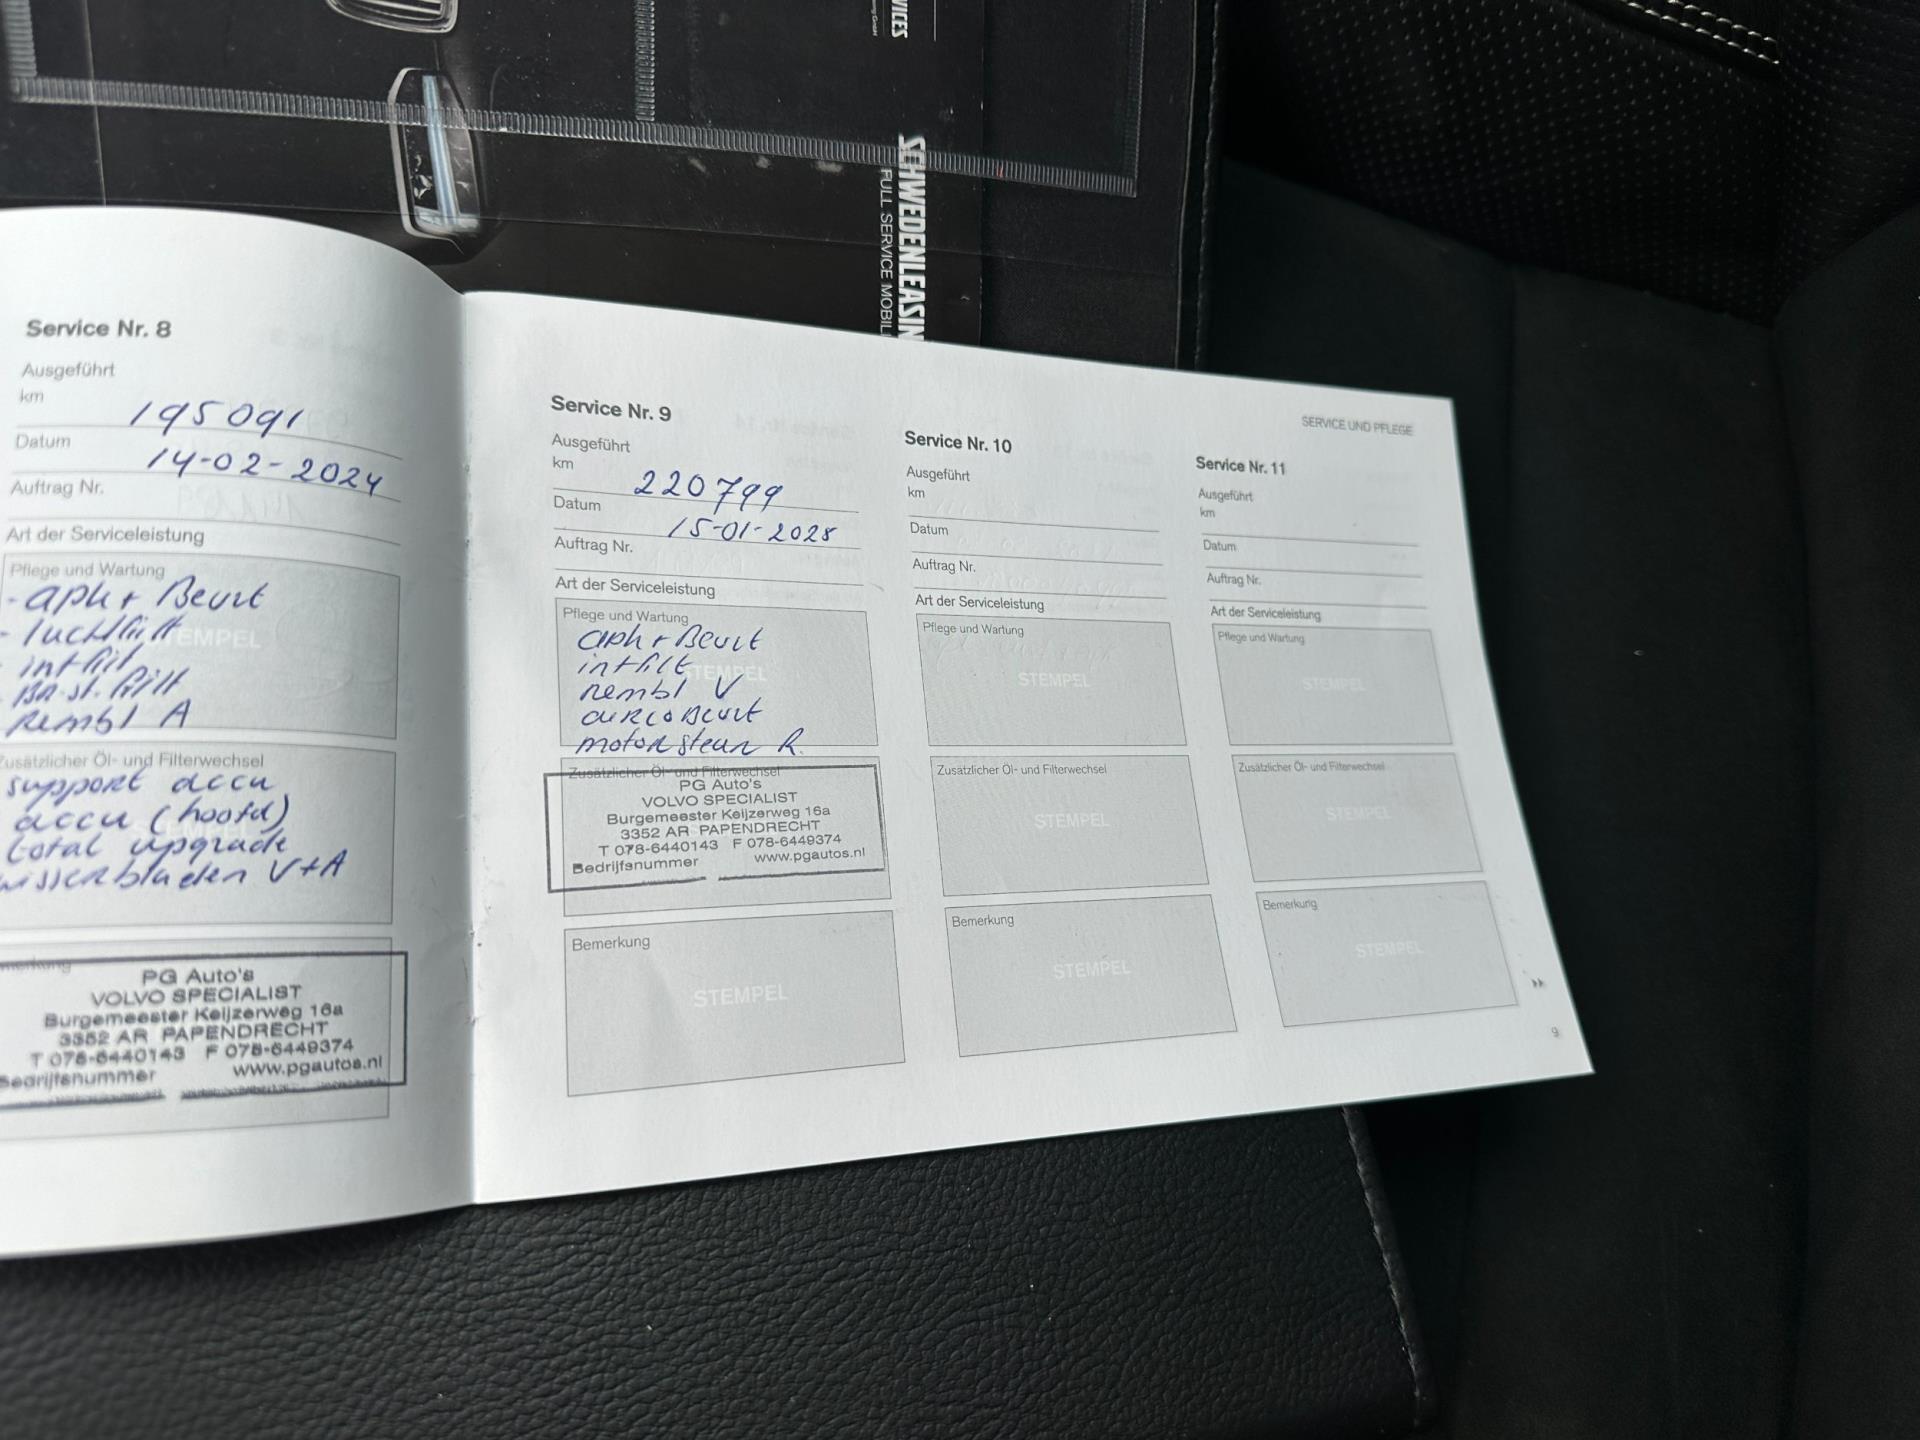 VICES
SCHWEDENLEASIN
FULL SERVICE MOBILI
Service Nr. 8
Ausgeführt
km
195091
Datum
14-02-2024
Auftrag Nr.
Art der Serviceleistung
Pflege und Wartung
- aph + Beurt
- luchtfilt
STEMPEL
- intfilt
- Br.st. filt
remBl A
Zusätzlicher Öl- und Filterwechsel
support accu
accu (hoofd)
total upgrade
wisserbladen V+A
PG Auto's
VOLVO SPECIALIST
Burgemeester Keijzerweg 16a
3352 AR PAPENDRECHT
T 078-6440143 F 078-6449374
Bedrijfsnummer www.pgautos.nl
Service Nr. 9
Ausgeführt
km
220799
Datum
15-01-2025
Auftrag Nr.
Art der Serviceleistung
Pflege und Wartung
aph + Beurt
intfilt
STEMPEL
rembl V
aircoBeurt
motorsteun R.
Zusätzlicher Öl- und Filterwechsel
PG Auto's
VOLVO SPECIALIST
Burgemeester Keijzerweg 16a
3352 AR PAPENDRECHT
T 078-6440143 F 078-6449374
Bedrijfsnummer www.pgautos.nl
Bemerkung
STEMPEL
Service Nr. 10
Ausgeführt
km
Datum
Auftrag Nr.
Art der Serviceleistung
Pflege und Wartung
STEMPEL
Zusätzlicher Öl- und Filterwechsel
STEMPEL
Bemerkung
STEMPEL
SERVICE UND PFLEGE
Service Nr. 11
Ausgeführt
km
Datum
Auftrag Nr.
Art der Serviceleistung
Pflege und Wartung
STEMPEL
Zusätzlicher Öl- und Filterwechsel
STEMPEL
Bemerkung
STEMPEL
9